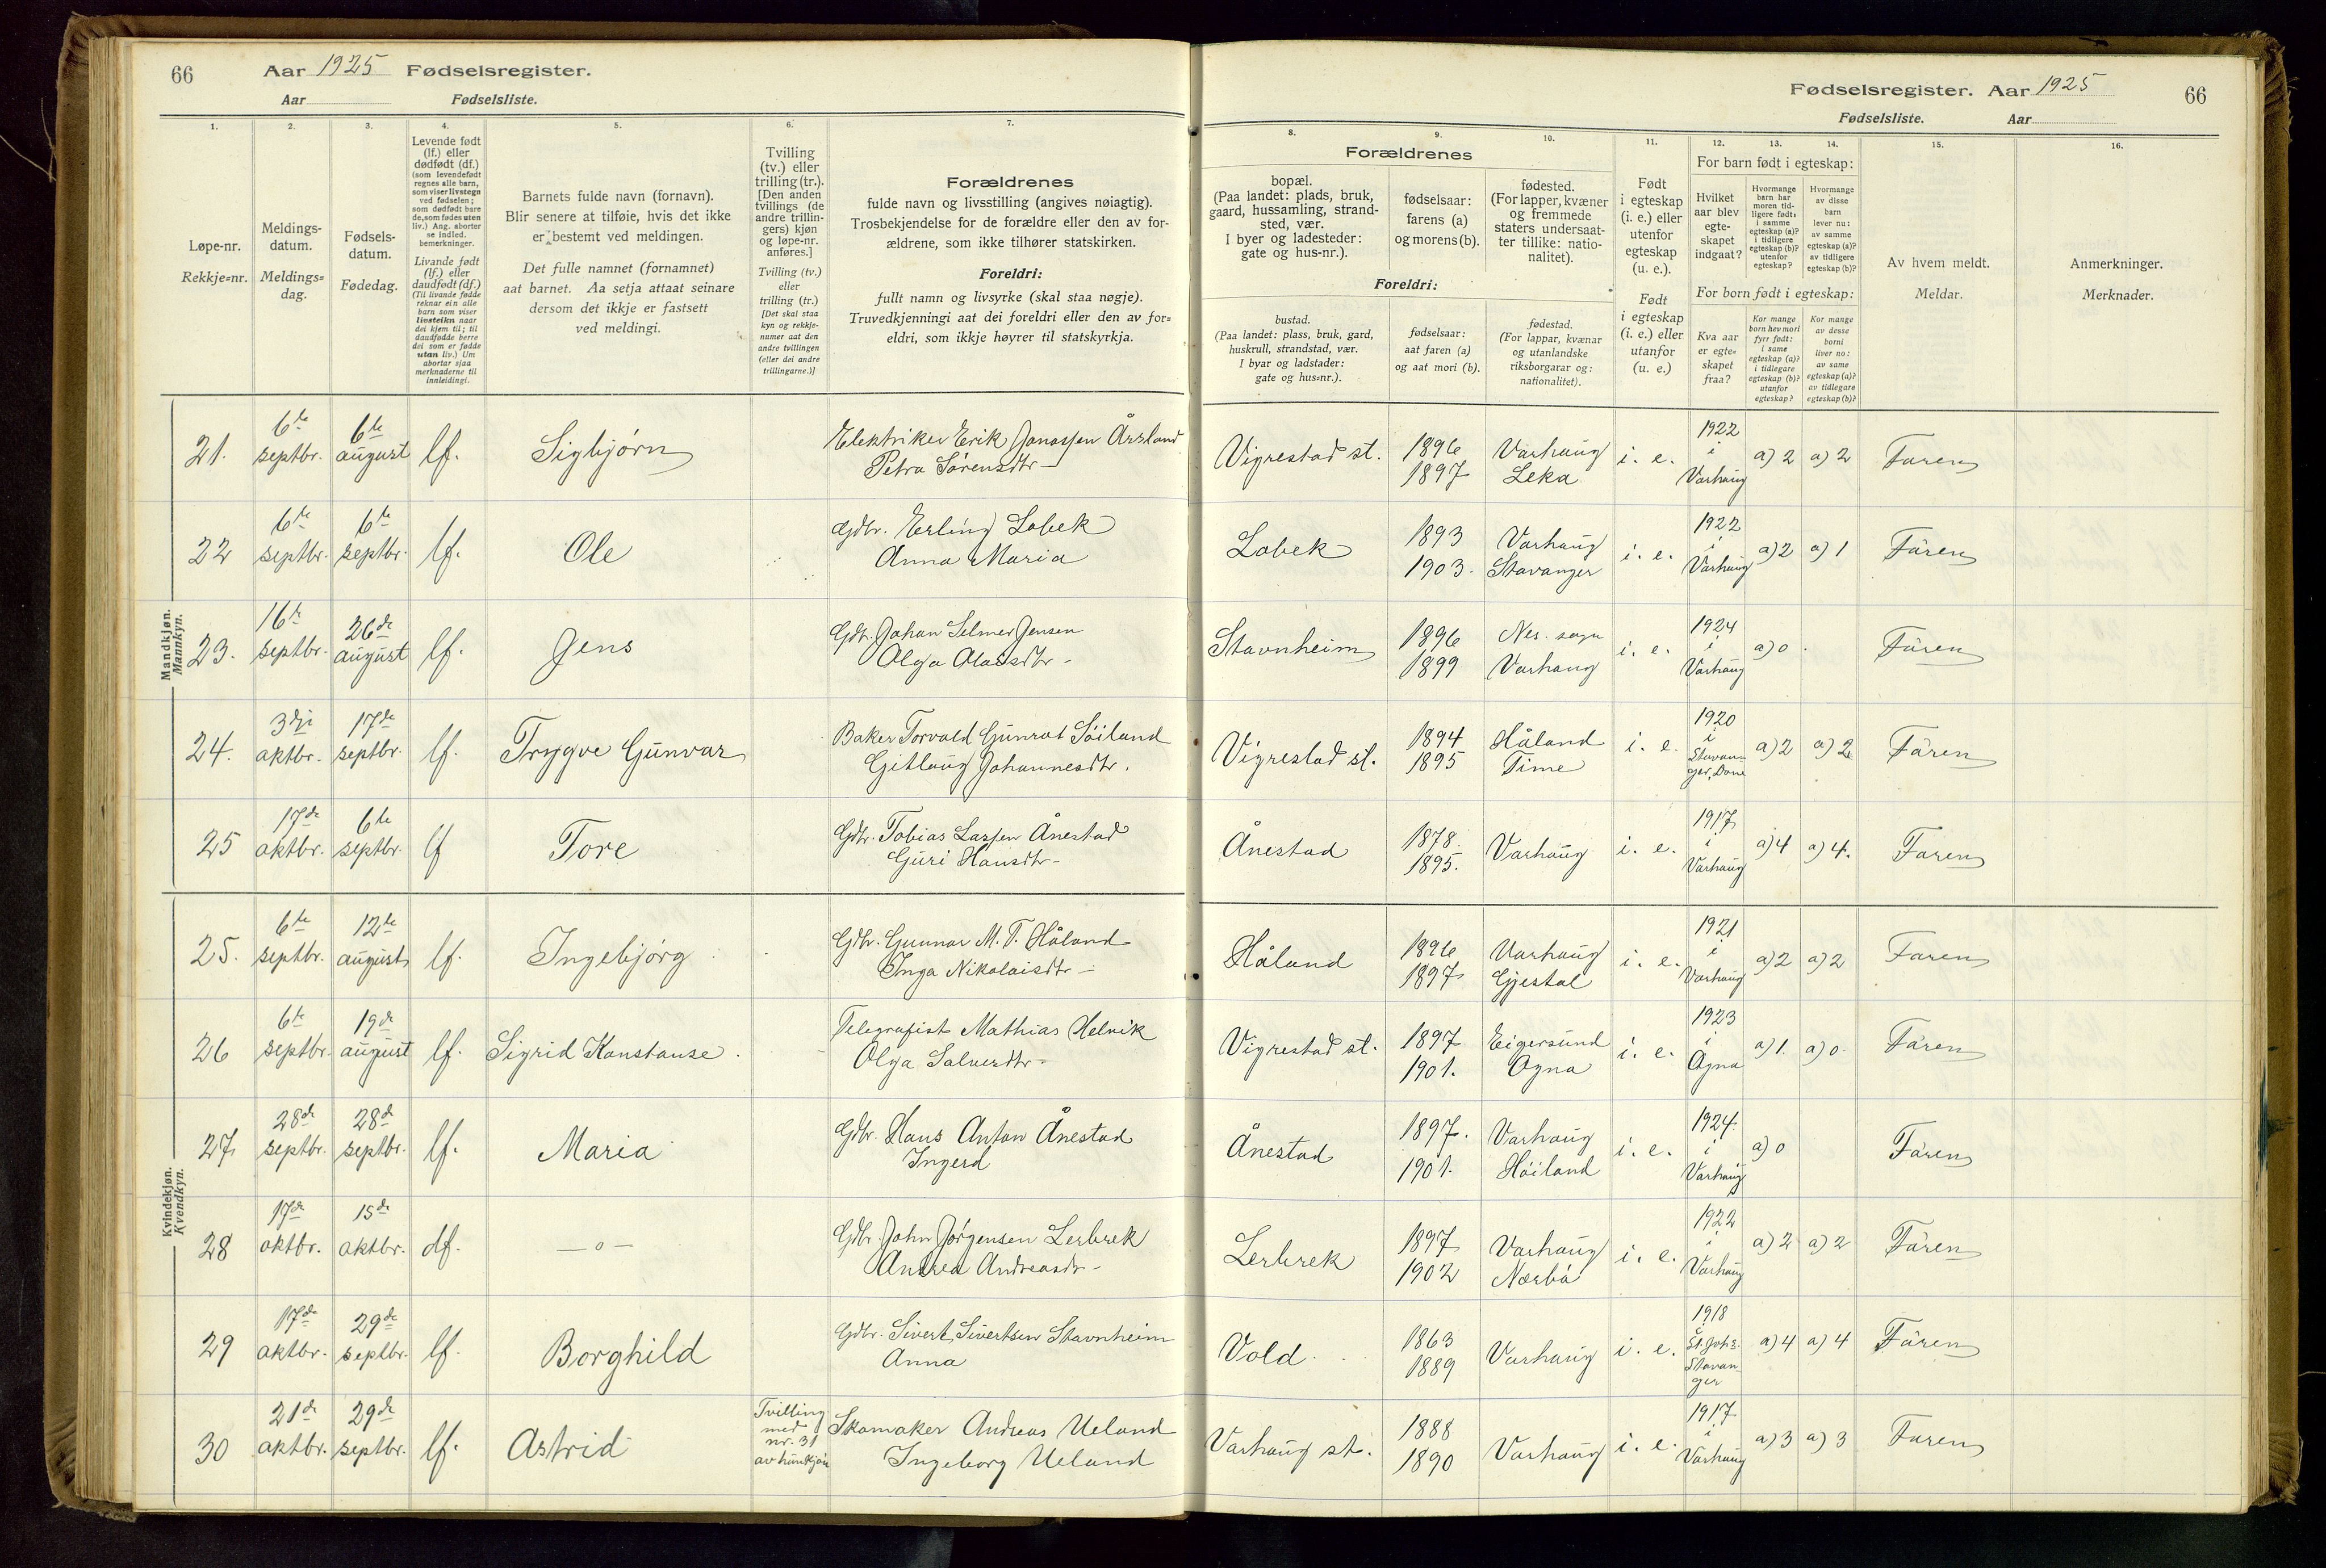 66 Aar 1925 Fødselsregister.
Aar Fødselsliste.
1. 2. 3. 4. 5. 6. 7.
Løpe-nr.
Rekkje=nr.
Meldings-
datum.
Meldings=
dag.
Fødsels-
datum.
Fødedag.
Levende født
(lf.) eller
dødfødt (df.)
(som levendefødt
regnes alle barn,
som viser livstegn
ved fødselen;
som dødfødt bare
de, som fødes uten
liv.) Ang. aborter
se indled.
bemerkninger.
Livande født
(lf.) eller
daudfødt (df.)
(Til livande fødde
reknar ein alle
barn som viser
livsteikn naar
dei kjem til; til
daudfødde berre
dei som er fødde
utan liv.) Um
abortar sjaa
merknaderne til
innleidingi.
Barnets fulde navn (fornavn).
Blir senere at tilføie, hvis det ikke
er bestemt ved meldingen.
Det fulle namnet (fornamnet)
aat barnet. Aa setja attaat seinare
dersom det ikkje er fastsett
ved meldingi.
Tvilling
(tv.) eller
trilling (tr.).
[Den anden
tvillings (de
andre trillin-
gers) kjøn
og løpe-nr.
anføres.]
Tvilling (tv.)
eller
trilling (tr.)
[Det skal staa
kyn og rekkje-
numer aat den
andre tvillingen
(eller dei andre
trillingarne.)]
Forældrenes
fulde navn og livsstilling (angives nøiagtig).
Trosbekjendelse for de forældre eller den av for-
ældrene, som ikke tilhører statskirken.
Foreldri:
fullt namn og livsyrke (skal staa nøgje).
Truvedkjenningi aat dei foreldri eller den av for=
eldri, som ikkje høyrer til statskyrkja.
Mandkjøn.
Mannkyn.
21. 6te septbr. 6te august lf. Sigbjørn Elektriker Erik Jonassen Årsland
Petra Sørensdtr
22 6te septbr. 6te septbr. lf. Ole Gdbr. Erling Lobek
Anna Maria
23. 16de septbr. 26de august lf. Jens Gdbr. Johan Selmer Jensen
Olga Olausdtr
24. 3dje oktbr. 17de septbr. lf. Trygve Gunvar Baker Torvald Gunrat Söiland
Gitlaug Johannesdtr.
25 17de oktbr. 6te septbr. lf Tore Gdbr. Tobias Lassen Ånestad
Guri Hansdtr
Kvindekjøn.
Kvendkyn.
25. 6te septbr. 12te august lf. Ingebjørg Gdbr. Gunnar M. T. Håland
Inga Nikolaisdtr
26 6te septbr. 19de august lf. Sigrid Konstanse Telegrafist Mathias Helvik
Olga Salvesdtr
27 28de septbr. 28de septbr. lf. Maria Gdbr. Hans Anton Ånestad
Ingerd
28 17de oktbr. 15de oktbr. df. —o— Gdbr. John Jörgensen Lerbrek
Andrea Andreasdtr
29 17de oktbr. 29de septbr. lf. Borghild Gdbr. Sivert Sivertsen Stavnheim
Anna
30 21de oktbr. 29de septbr. lf. Astrid Tvilling
med
nr. 31
av hunkjön Skomaker Andreas Ueland
Ingeborg Ueland
Fødselsregister. Aar 1925 66
Fødselsliste. Aar
8. 9. 10. 11. 12. 13. 14. 15. 16.
Forældrenes
bopæl.
(Paa landet: plads, bruk,
gaard, hussamling, strand-
sted, vær.
I byer og ladesteder:
gate og hus-nr.).
fødselsaar:
farens (a)
og morens (b).
fødested.
(For lapper, kvæner
og fremmede
staters undersaat-
ter tillike: natio-
nalitet).
Foreldri:
bustad.
(Paa landet: plass, bruk, gard,
huskrull, strandstad, vær.
I byar og ladstader:
gate og hus=nr.).
fødselsaar:
aat faren (a)
og aat mori (b).
fødestad.
(For lappar, kvænar
og utanlandske
riksborgarar og:
nationalitet).
Født
i egteskap
(i. e.) eller
utenfor
egteskap
(u. e.).
Født
i egteskap
(i. e.) eller
utanfor
(u. e.)
For barn født i egteskap:
Hvilket
aar blev
egte-
skapet
indgaat?
Hvormange
barn har
moren tid-
ligere født:
i samme
egteskap (a)?
i tidligere
egteskap (b)?
utenfor
egteskap?
Hvormange
av disse
barn
lever nu:
av samme
egteskap (a)?
av tidligere
egteskap (b)?
For born født i egteskap:
Kva aar
er egte=
skapet
fraa?
Kor mange
born hev mori
fyrr født:
i same
egteskap (a)?
i tidlegare
egteskap (b)?
utanfor
egteskap?
Kor mange
av desse
borni
liver no:
av same
egteskap (a)?
av tidlegare
egteskap (b)?
Av hvem meldt.
Meldar.
Anmerkninger.
Merknader.
Vigrestad st. 1896 1897 Varhaug Leka i. e. 1922 i Varhaug a) 2 a) 2 Faren
Lobek 1893 1903. Varhaug Stavanger i. e. 1922 i Varhaug a) 2 a) 1 Faren
Stavnheim 1896 1899 Nes. sogn Varhaug i. e. 1924 i Varhaug a) 0 Faren
Vigrestad st. 1894 1895 Håland Time i. e. 1920 i Stavanger, Dome a) 2 a) 2 Faren
Ånestad 1878. 1895. Varhaug i. e. 1917 i Varhaug a) 4 a) 4. Faren
Håland 1896 1897 Varhaug Gjestal i. e. 1921 i Varhaug a) 2 a) 2 Faren
Vigrestad st. 1897 1901. Eigersund Ogna i. e. 1923 i Ogna a) 1. a) 0 Faren
Ånestad 1897. 1901. Varhaug Höiland i. e. 1924 i Varhaug a) 0 Faren
Lerbrek 1897 1902 Varhaug Nærbö i. e. 1922 i Varhaug a) 2 a) 2 Faren
Vold 1863 1889 Varhaug i. e. 1918 St. Joh's. Stavanger a) 4 a) 4 Faren
Varhaug st. 1888 1890 Varhaug i. e. 1917 i Varhaug a) 3 a) 3 Faren